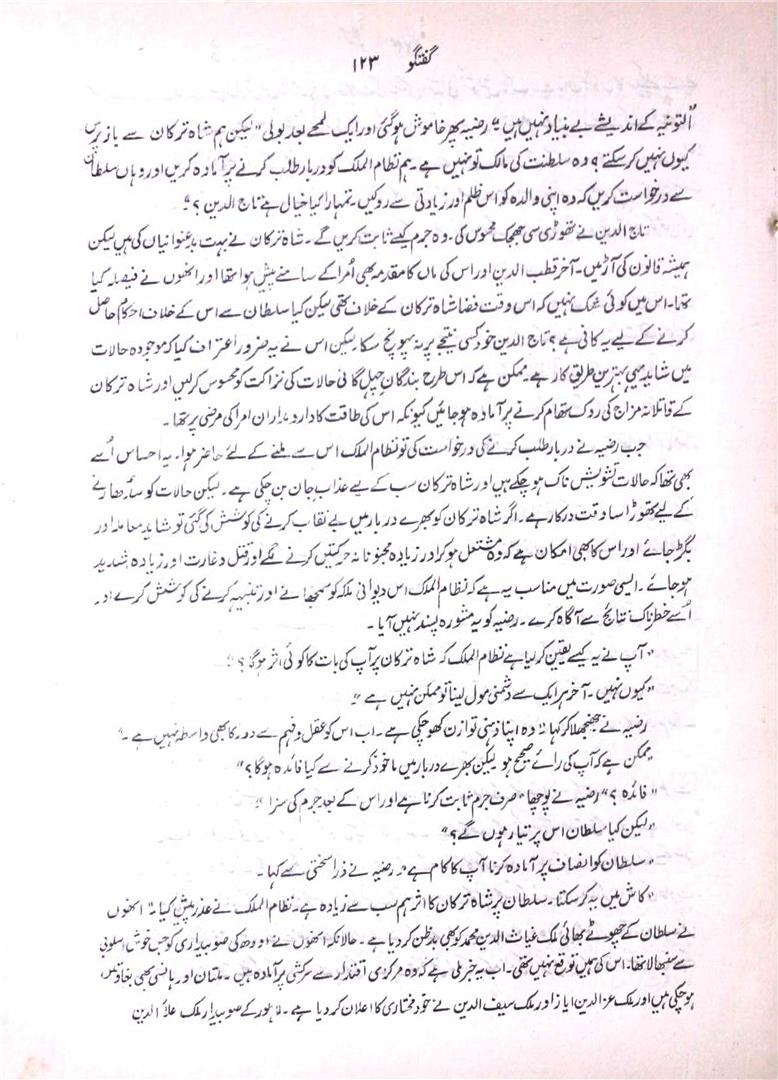 گفتگو ۱۲۳
اُلتونیہ کے اندیشے بے بنیاد نہیں ہیں" رضیہ پھر خاموش ہو گئی اور ایک لمحے بعد بولی "لیکن ہم شاہ ترکان سے باز پرس
کیوں نہیں کر سکتے؟ وہ سلطنت کی مالک تو نہیں ہے۔ ہم نظام الملک کو دربار طلب کرنے پر آمادہ کریں اور وہاں سلطان
سے درخواست کریں کہ وہ اپنی والدہ کو اس ظلم اور زیادتی سے روکیں۔ تمہارا کیا خیال ہے تاج الدین؟"
تاج الدین نے تھوڑی سی جھجک محسوس کی۔ وہ جرم کیسے ثابت کریں گے۔ شاہ ترکان نے بہت بدعنوانیاں کی ہیں لیکن
ہمیشہ قانون کی آڑ میں۔ آخر قطب الدین اور اس کی ماں کا مقدمہ بھی اُمرا کے سامنے پیش ہوا تھا اور انھوں نے فیصلہ کیا
تھا۔ اس میں کوئی شک نہیں کہ اس وقت فضا شاہ ترکان کے خلاف تھی لیکن کیا سلطان سے اس کے خلاف احکام حاصل
کرنے کے لیے یہ کافی ہے؟ تاج الدین خود کسی نتیجے پر نہ پہونچ سکا لیکن اس نے یہ ضرور اعتراف کیا کہ موجودہ حالات
میں شاید یہی بہترین طریق کار ہے۔ ممکن ہے کہ اس طرح بندگانِ چہل گانی حالات کی نزاکت کو محسوس کر لیں اور شاہ ترکان
کے قاتلانہ مزاج کی روک تھام کرنے پر آمادہ ہو جائیں کیونکہ اس کی طاقت کا دارومدار ان امرا کی مرضی پر تھا۔
جب رضیہ نے دربار طلب کرنے کی درخواست کی تو نظام الملک اس سے ملنے کے لئے حاضر ہوا۔ یہ احساس اُسے
بھی تھا کہ حالات تشویش ناک ہو چکے ہیں اور شاہ ترکان سب کے لیے عذابِ جان بن چکی ہے۔ لیکن حالات کو سدھارنے
کے لیے تھوڑا سا وقت درکار ہے۔ اگر شاہ ترکان کو بھرے دربار میں بے نقاب کرنے کی کوشش کی گئی تو شاید معاملہ اور
بگڑ جائے اور اس کا بھی امکان ہے کہ وہ مشتعل ہو کر اور زیادہ مجنونانہ حرکتیں کرنے لگے اور قتل و غارت اور زیادہ شدید
ہو جائے۔ ایسی صورت میں مناسب یہ ہے کہ نظام الملک اس دیوانی ملکہ کو سمجھانے اور تنبیہہ کرنے کی کوشش کرے اور
اُسے خطرناک نتائج سے آگاہ کرے۔ رضیہ کو یہ مشورہ پسند نہیں آیا۔
"آپ نے یہ کیسے یقین کر لیا ہے نظام الملک کہ شاہ ترکان پر آپ کی بات کا کوئی اثر ہو گا؟"
"کیوں نہیں۔ آخر ہر ایک سے دشمنی مول لینا تو ممکن نہیں ہے"
رضیہ نے جھنجھلا کر کہا "وہ اپنا ذہنی توازن کھو چکی ہے۔ اب اس کو عقل و فہم سے دور کا بھی واسطہ نہیں ہے۔"
"ممکن ہے کہ آپ کی رائے صحیح ہو لیکن بھرے دربار میں ماخوذ کرنے سے کیا فائدہ ہو گا؟"
"فائدہ؟" رضیہ نے پوچھا "صرف جرم ثابت کرنا ہے اور اس کے بعد جرم کی سزا"
"لیکن کیا سلطان اس پر تیار ہوں گے؟"
"سلطان کو انصاف پر آمادہ کرنا آپ کا کام ہے" رضیہ نے ذرا سختی سے کہا۔
"کاش میں یہ کر سکتا۔ سلطان پر شاہ ترکان کا اثر ہم سب سے زیادہ ہے۔ نظام الملک نے عذر پیش کیا" انھوں
نے سلطان کے چھوٹے بھائی ملک غیاث الدین محمد کو بھی بدظن کر دیا ہے۔ حالانکہ انھوں نے اودھ کی صوبیداری کو جس خوش اسلوبی
سے سنبھالا تھا۔ اس کی ہمیں توقع نہیں تھی۔ اب یہ خبر ملی ہے کہ وہ مرکزی اقتدار سے سرکشی پر آمادہ ہیں۔ ملتان اور ہانسی بھی بغاوتیں
ہو چکی ہیں اور ملک عزالدین ایاز اور ملک سیف الدین نے خود مختاری کا اعلان کر دیا ہے۔ لاہور کے صوبیدار ملک علاؤ الدین